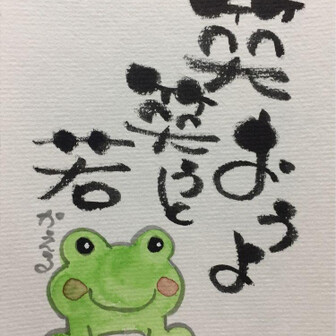 笑おうよ
笑うと
若